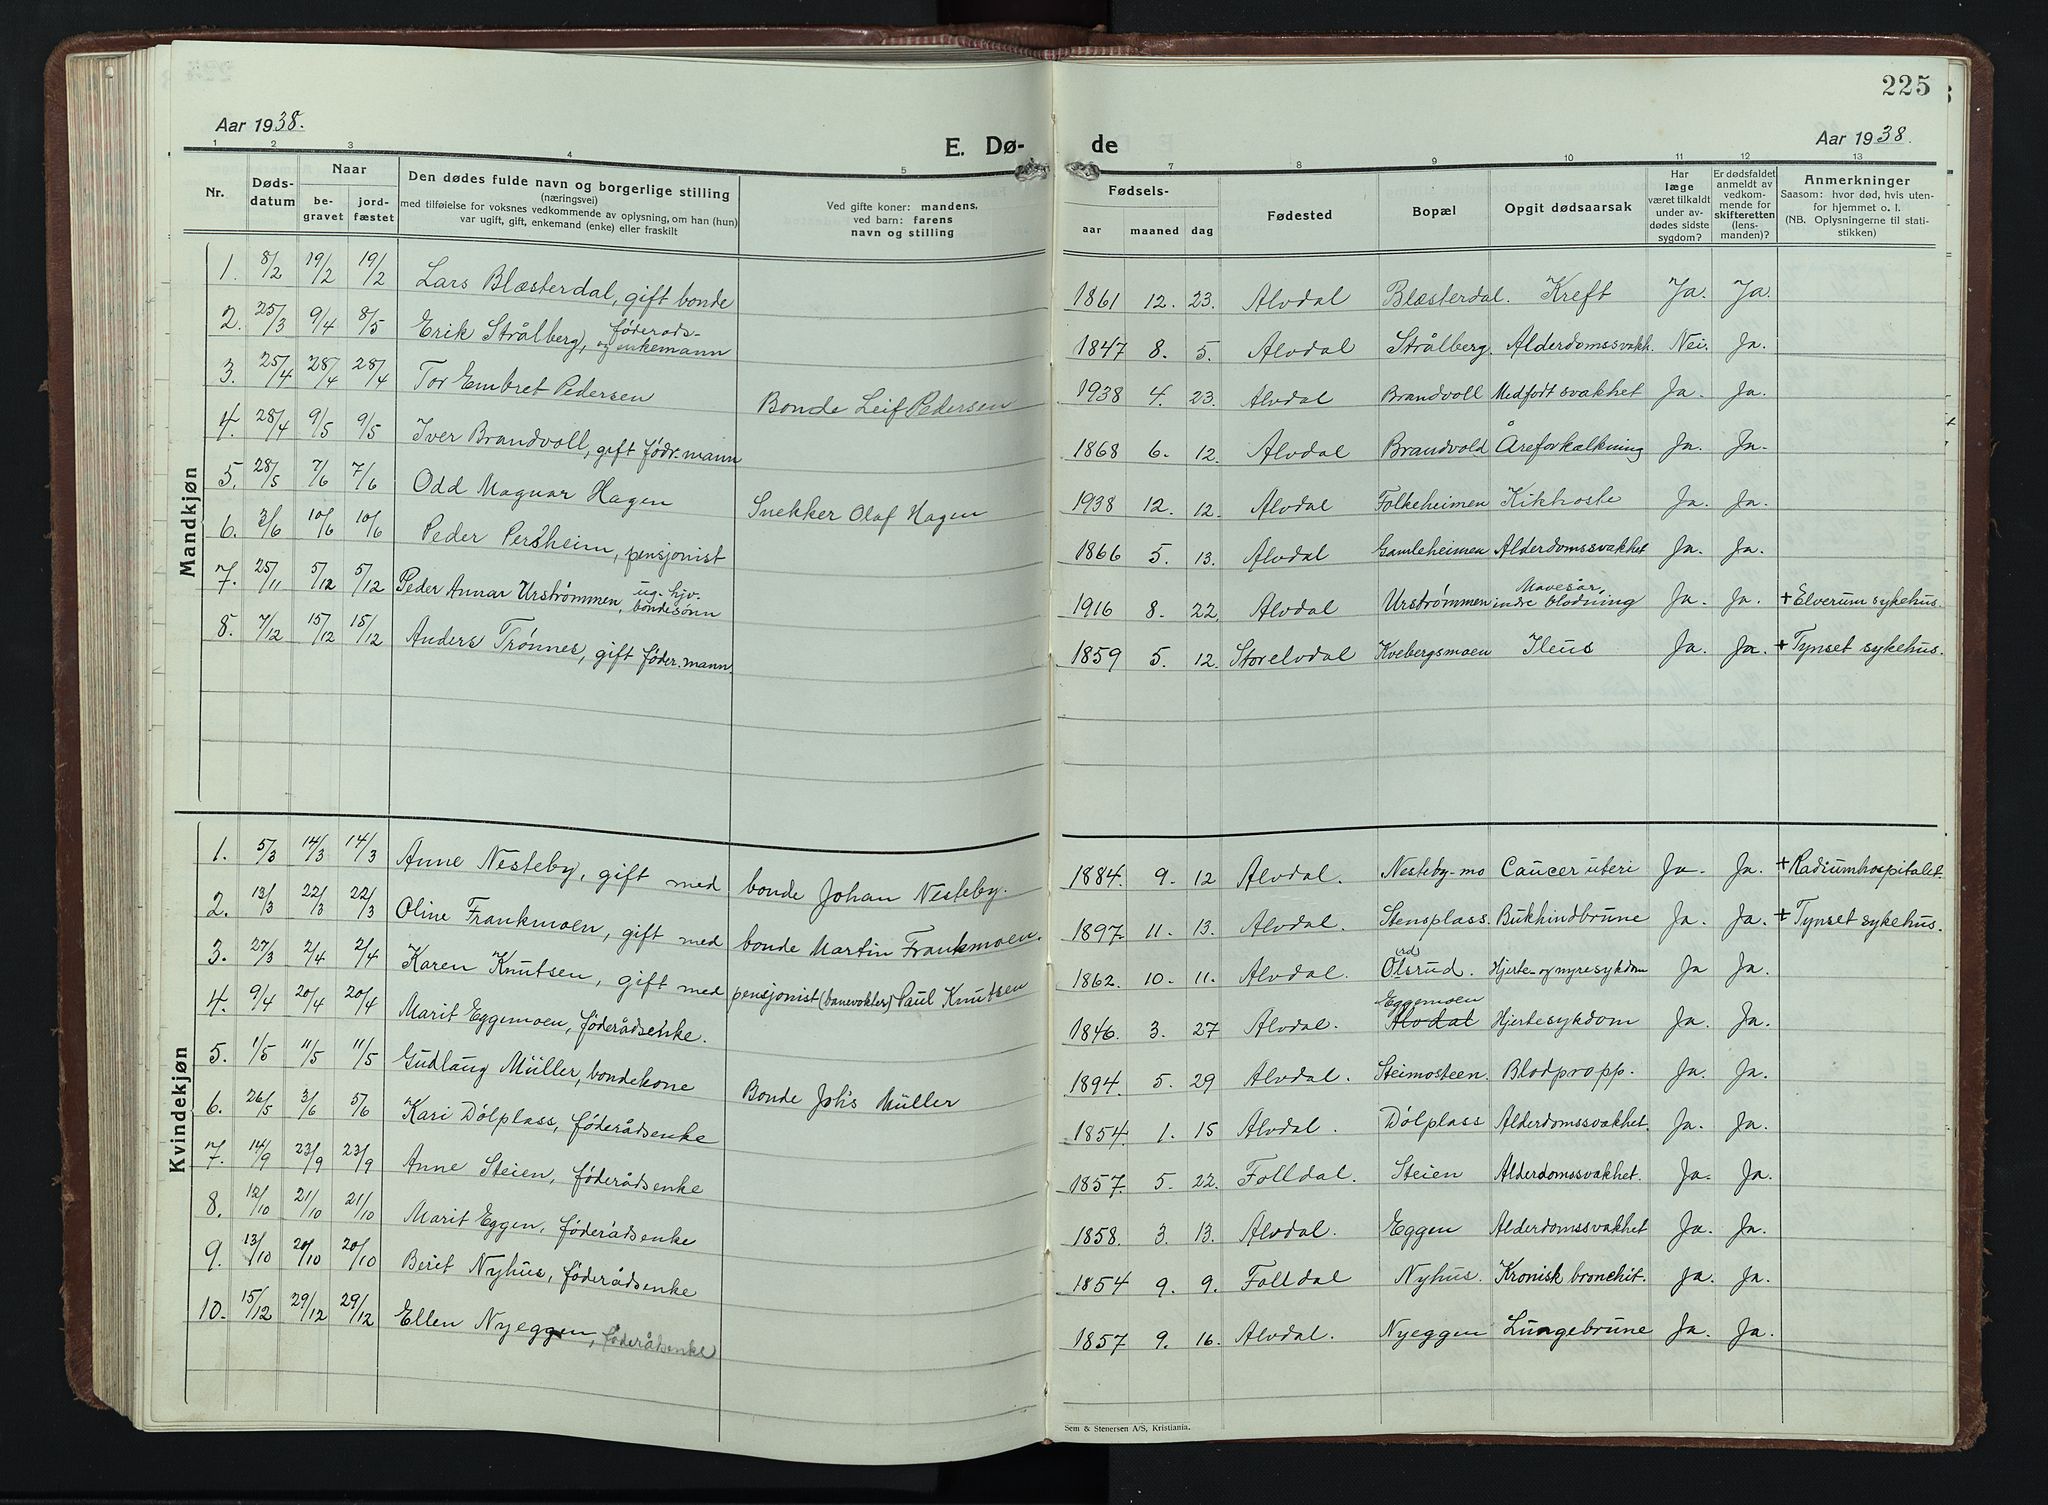 225
Aar 1938.
E. Dø-
de
Aar 1938.
1 2 3 4 5 7 8 9 10 11 12 13
Nr.
Døds-
datum
Naar
be-
gravet
jord-
fæstet
Den dødes fulde navn og borgerlige stilling
(næringsvei)
med tilføielse for voksnes vedkommende av oplysning, om han (hun)
var ugift, gift, enkemand (enke) eller fraskilt
Ved gifte koner: mandens,
ved barn: farens
navn og stilling
Fødsels-
aar maaned dag
Fødested
Bopæl
Opgit dødsaarsak
Har
læge
været tilkaldt
under av-
dødes sidste
sygdom?
Er dødsfaldet
anmeldt av
vedkom-
mende for
skifteretten
(lens-
manden)?
Anmerkninger
Saasom: hvor død, hvis uten-
for hjemmet o. l.
(NB. Oplysningerne til stati-
stikken)
Mandkjøn
1. 8/2 19/2 19/2 Lars Blæsterdal, gift bonde 1861 12. 23. Alvdal Blæsterdal. Kreft Ja. Ja.
2. 25/3 9/4 8/5 Erik Strålberg, føderads- og enkemann 1847 8. 5. Alvdal Strålberg. Alderdomssvakh. Nei. Ja.
3. 25/4 28/4 28/4 Tor Embret Pedersen Bonde Leif Pedersen 1938 4. 23. Alvdal Brandvoll Medfødt svakhet Ja. Ja.
4. 28/4 9/5 9/5 Iver Brandvoll, gift fødr.mann 1868 6. 12. Alvdal Brandvold Åreforkalkning Ja. Ja.
5. 28/5 7/6 7/6 Odd Magnar Hagen Snekker Olaf Hagen 1938 12. 12. Alvdal Folkeheimen Kikhoste Ja. Ja.
6. 3/6 10/6 10/6 Peder Persheim, pensjonist 1866 5. 13. Alvdal Gamleheimen Alderdomssvakhet Ja. Ja.
7. 25/11 5/12 5/12 Peder Annar Urstrømmen, ug. hjv. bondesønn 1916 8. 22. Alvdal Urstrømmen Mavesår, indre blødning Ja. Ja. + Elverum sykehus.
8. 7/12 15/12 15/12 Anders Trønnes, gift føder.mann. 1859 5. 12. Storelvdal Kvebergsmoen Ileus Ja. Ja. + Tynset sykehus.
Kvindekjøn
1. 5/3 14/3 14/3 Anne Nesteby, gift med bonde Johan Nesteby. 1884. 9. 12 Alvdal. Nesteby-mo Caucer uteri Ja. Ja. + Radiumhospitalet.
2. 13/3 22/3 22/3 Oline Frankmoen, gift med bonde Martin Frankmoen. 1897. 11. 13. Alvdal. Stensplass. Bukhindbrune Ja. Ja. + Tynset sykehus.
3. 27/3 2/4 2/4 Karen Knutsen, gift med pensjonist (banevokter) Paul Knutsen 1862. 10. 11. Alvdal. Olsrud. Hjerte- og nyresykdom Ja Ja.
4. 9/4 20/4 20/4 Marit Eggemoen, føderådsenke. 1846. 3. 27 Alvdal. Eggemoen Alvdal Hjertesykdom Ja. Ja.
5. 1/5 11/5 11/5 Gudlaug Müller, bondekone Bonde Johs Müller 1894. 5. 29 Alvdal. Steimosteen. Blodpropp. Ja. Ja.
6. 26/5 3/6 5/6 Kari Dølplass, føderådsenke 1854. 1. 15 Alvdal. Dølplass Alderdomssvakhet. Ja. Ja.
7. 14/9 23/9 23/9 Anne Steien, føderådsenke 1857. 5. 22. Folldal. Steien Alderdomssvakhet. Ja. Ja.
8. 12/10 21/10 21/10 Marit Eggen, føderådsenke 1858. 3. 13. Alvdal. Eggen Alderdomssvakhet Ja. Ja.
9. 13/10 20/10 20/10 Berit Nyhus, føderådsenke 1854 9. 9. Folldal Nyhus. Kronisk bronchit. Ja. Ja.
10. 15/12 29/12 29/12 Ellen Nyeggen, føderådsenke 1857 9. 16. Alvdal. Nyeggen Lungebrune Ja. Ja.
Sem & Stenersen A/S, Kristiania.